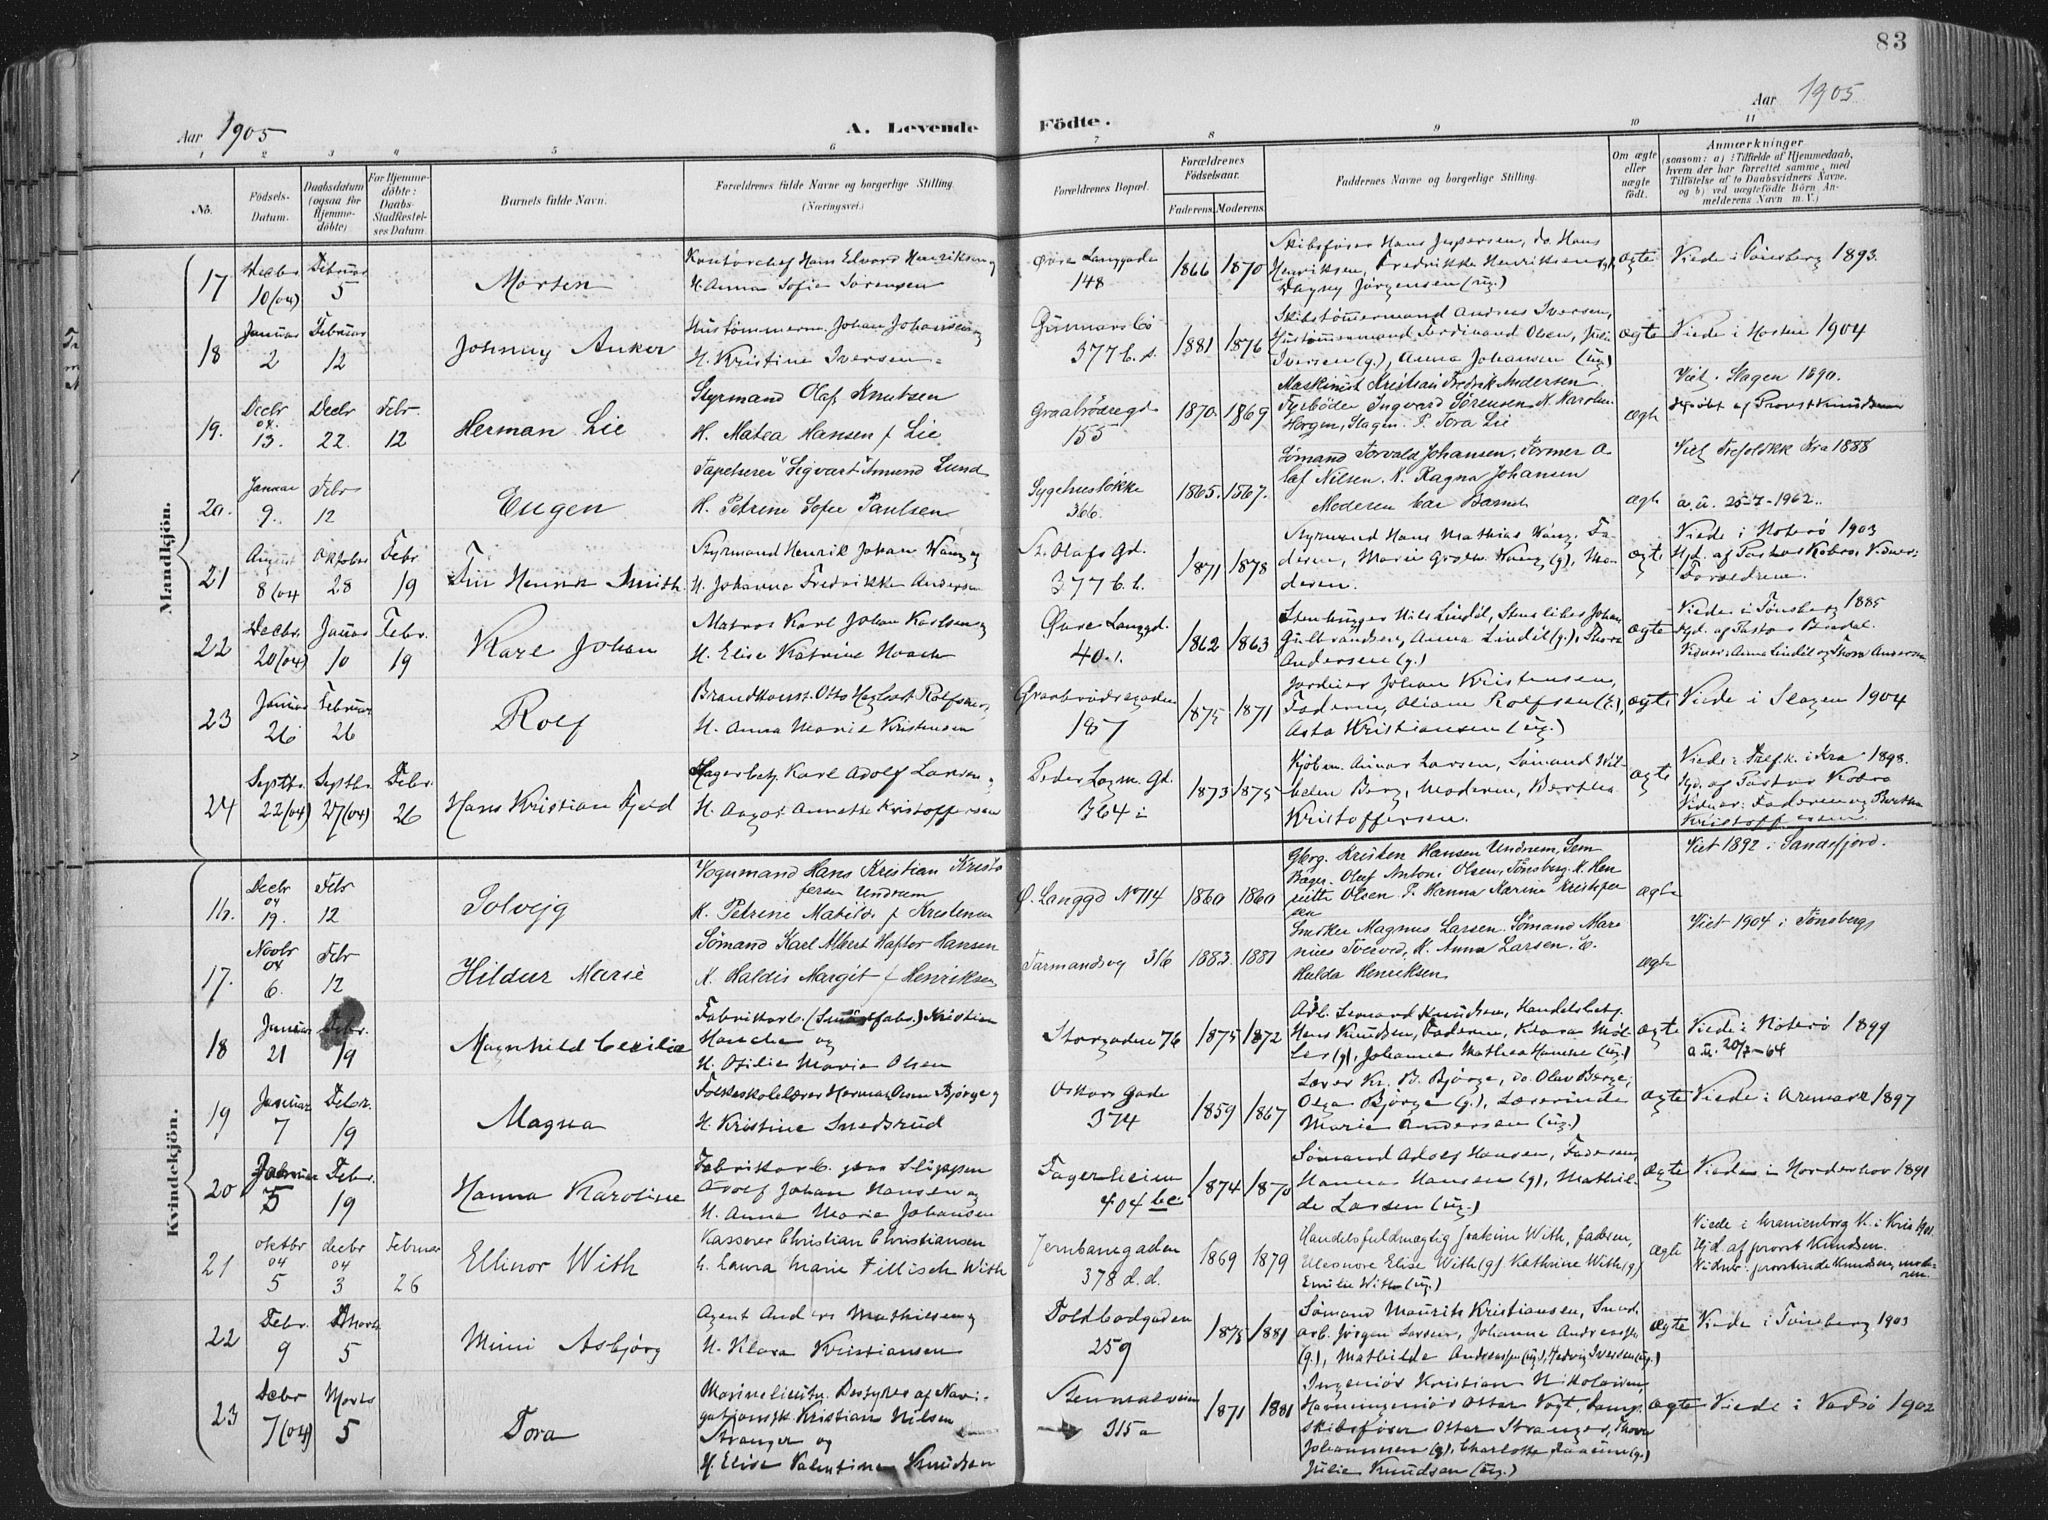 83
Aar 1905
A. Levende
Födte.
Aar 1905
1 2 3 4 5 6 7 8 9 10 11
No.
Födsels-
Datum.
Daabsdatum
(ogsaa for
Hjemme-
döbte)
For Hjemme-
döbte:
Daabs-
Stadfæstel-
ses Datum.
Barnets fulde Navn.
Forældrenes fulde Navne og borgerlige Stilling.
(Næringsvei.)
Forældrenes Bopæl.
Forældrenes
Födselsaar.
Faderens. Moderens.
Faddernes Navne og borgerlige Stilling.
Om ægte
eller
uægte
födt.
Anmærkninger
(saasom: a) i Tilfælde af Hjemmedaab,
hvem der har forrettet samme, med
Tilföielse af to Daabsvidners Navne,
og b) ved uægtefödte Börn An-
melderens Navn m. V.)
Mandkjön.
17
Decbr
10 (04)
Februar
5
Morten
Kontorchef Hans Edvard Henriksen og
H. Anna Sofie Sørensen
Øvre Langgade
148
1866 1870
Skibsfører Hans Jespersen, do. Hans
Henriksen, Fredrikke Henriksen (g.),
Dagny Jørgensen (ug.)
ægte
Viede i Tönsberg 1893.
18
Januar
2
Februar
12
Johnny Anker
Hustømmerm. Johan Johansen og
H. Kristine Iversen
Gunnarsbö
377 b. s.
1881 1876
Skibstømmermand Andreas Iversen,
Hustømmermand Ferdinand Olsen,
Iversen (g.), Anna Johansen (ug.)
ægte
Viede i Horten 1904
19.
Decbr
04.
13.
Decbr
22.
Febr.
12
Herman Lie
Styrmand Olaf Knutsen
H. Matea Hansen f Lie
Graabrödregd
155
1870. 1869
Maskinist Kristian Fredrik Andersen
Fyrböder Ingvard Sørensen H. Karoline
Horgen, Slagen. P. Tora Lie
ægte
Viet. Slagen 1890.
Hjdöbt af Provst Knudsen
20.
Januar
9.
Febr
12
Eugen
Tapetserer Sigvart Amund Lund
H. Petrine Sofie Paulsen
Sygehuslökke
366.
1865. 1867.
Sømand Torvald Johansen, Former O
laf Nilsen. K. Ragna Johansen
Moderen bar Barnet
ægte
Viet Trefoldkk Kra 1888
a. u. 25-7-1962.
21
August
8 (04
Oktober
28
Febr
19
Finn Henrik Smith
Styrmand Henrik Johan Wang og
H. Johanna Fredrikke Andersen
St. Olafs Gd.
377 b. b.
1871 1878
Styrmand Hans Mathias Wang, Fa-
deren, Marie Wang (g), Mo-
deren.
ægte
Viede i Nøterö 1903
Hjd. af Pastor Kobro, Vidner:
Forældrene.
22
Decbr.
20 (04)
Januar
10
Febr.
19
Karl Johan
Matros Karl Johan Karlsen og
H. Elise Katrine Noach
Øvre Langgd.
40.
1862 1863
Stenhugger Nils Lindil, Stensliber Johan
Gulbrandsen, Anna Lindil (g.), Thora
Andersen (g.)
ægte
Viede i Tønsberg 1885
Hjd. af Pastor Bredal.
Vidner: Anna Lindil og Thora Andersen
23
Januar
26
Februar
26
Rolf
Brandkonst. Otto Hagbart Rolfsen og
H. Anna Marie Kristensen
Graabrödregaden
187
1875. 1871
Gardeier Johan Kristensen,
Faderen, Oliane Rolfsen (g.),
Asta Kristiansen (ug.)
ægte
Viede i Slagen 1904
24
Septbr.
22 (04)
Septbr.
27 (04)
Febr.
26
Hans Kristian Fjeld
Lagerbetj. Karl Adolf Larsen og
H. Aagot Annette Kristoffersen
Peder Lagm. Gd.
364 i
1873 1875
Kjöbm. Gunnar Larsen, Sømand Wil-
helm Berg, Moderen, Bertha
Kristoffersen.
ægte
Viede i Trefk. i Kra 1898.
Hjd. af Pastor Kobro
Vidner: Faderen og Bertha
Kristoffersen.
Kvindekjön.
16.
Decbr
04
19.
Febr
12
Solveig
Vognmand Hans Kristian Kristo
fersen Undrum
K. Petrine Matilde f Kristensen
Ø. Langgd No 114
1860 1860
Gbrg. Kristen Hansen Undrum, Sem
Bager. Oluf Antoni Olsen, Tönsberg. K. Hen
riette Olsen P. Hanna Karine Kristoffer
sen
ægte
Viet 1892 i Sandefjord.
17.
Novbr
04
6.
Febr
12
Hildur Marie
Sømand Karl Albert Haftor Hansen
K. Haldis Margit f Henriksen
Farmandsvg 316
1883. 1881
Snedker Magnus Larsen. Sømand Mari
nius Tveved, K. Anna Larsen. P.
Hulda Henriksen
ægte
Viet 1904 i Tönsberg
18
Januar
21
Febr.
19
Magnhild Cecilie
Fabrikarb. (Smørfabr.) Kristian
Hansche og
H. Otilie Marie Olsen
Storgaden 76
1875 1872
Arb. Leonard Knudsen, Handelsbetj.
Hans Knudsen, Faderen, Klara Møl-
ler (g), Johanna Mathea Hansche (ug.)
ægte
Viede i Nöterö 1899
a. u. 20/7-64
19
Januar
7
Febr.
19
Magna
Folkeskolelærer Herman Osen Bjørge og
H. Kristine Snedsrud
Oskars Gade
374
1859 1867
Lærer Kr. B. Bjørge, do. Olav Berge,
Olga Bjørge (g.), Lærerinde
Marie Andersen (ug.)
ægte
Viede i Aremark 1897
20
Januar
5
Febr.
19
Hanna Karoline
Fabrikarb. paa Slippen
Adolf Johan Hansen og
H. Anna Marie Johansen
Fagerheim
404 bc.
1874 1870
Sømand Adolf Hansen, Faderen,
Hanna Hansen (g), Mathil
de Larsen (ug.)
ægte
Viede i Norderhov 1891
21
Oktbr
04
5
decbr
04
3
Februar
26
Ellinor With
Kasserer Christian Christiansen
h. Laura Marie Fillisch With
Jernbanegaden
378 d. d.
1869 1879
Handelsfuldmægtig Joakim With, faderen,
Eleonore Elise With (g) Kathrine With (g)
Emilie With (ug.)
ægte
Viede i Uranienborg K. i Kria 1901
Hjd. af provst Knudsen.
Vidner: provstinde Knudsen, mode-
ren.
22
Febr.
9
Marts
5
Mimi Asbjørg
Agent Anders Mathisen og
H. Klara Kristiansen
Toldbodgaden
259
1875 1881
Sømand Maurits Kristiansen, Smed-
arb. Jörgen Larsen, Johanne Andreassen
(g.), Mathilde Andreassen (ug.), Hedvig Iversen (ug.)
ægte
Viede i Tönsberg 1903
23
Decbr
7 (04)
Marts
5
Tora
Marinelieutn. Bestyrer af Navi-
gationssk. Kristian Nilsen
Stranger og
H. Elise Valentine Knudsen
Stenmalveien
315 a
1871 1881
Ingeniör Kristian Nikolaisen,
Havneingeniør Ottar Vogt,
Skibsfører Ottar Stranger, Thora
Johannesen (g), Charlotte (g.)
Julie Knudsen (ug.)
ægte
Viede i Vadsö 1902